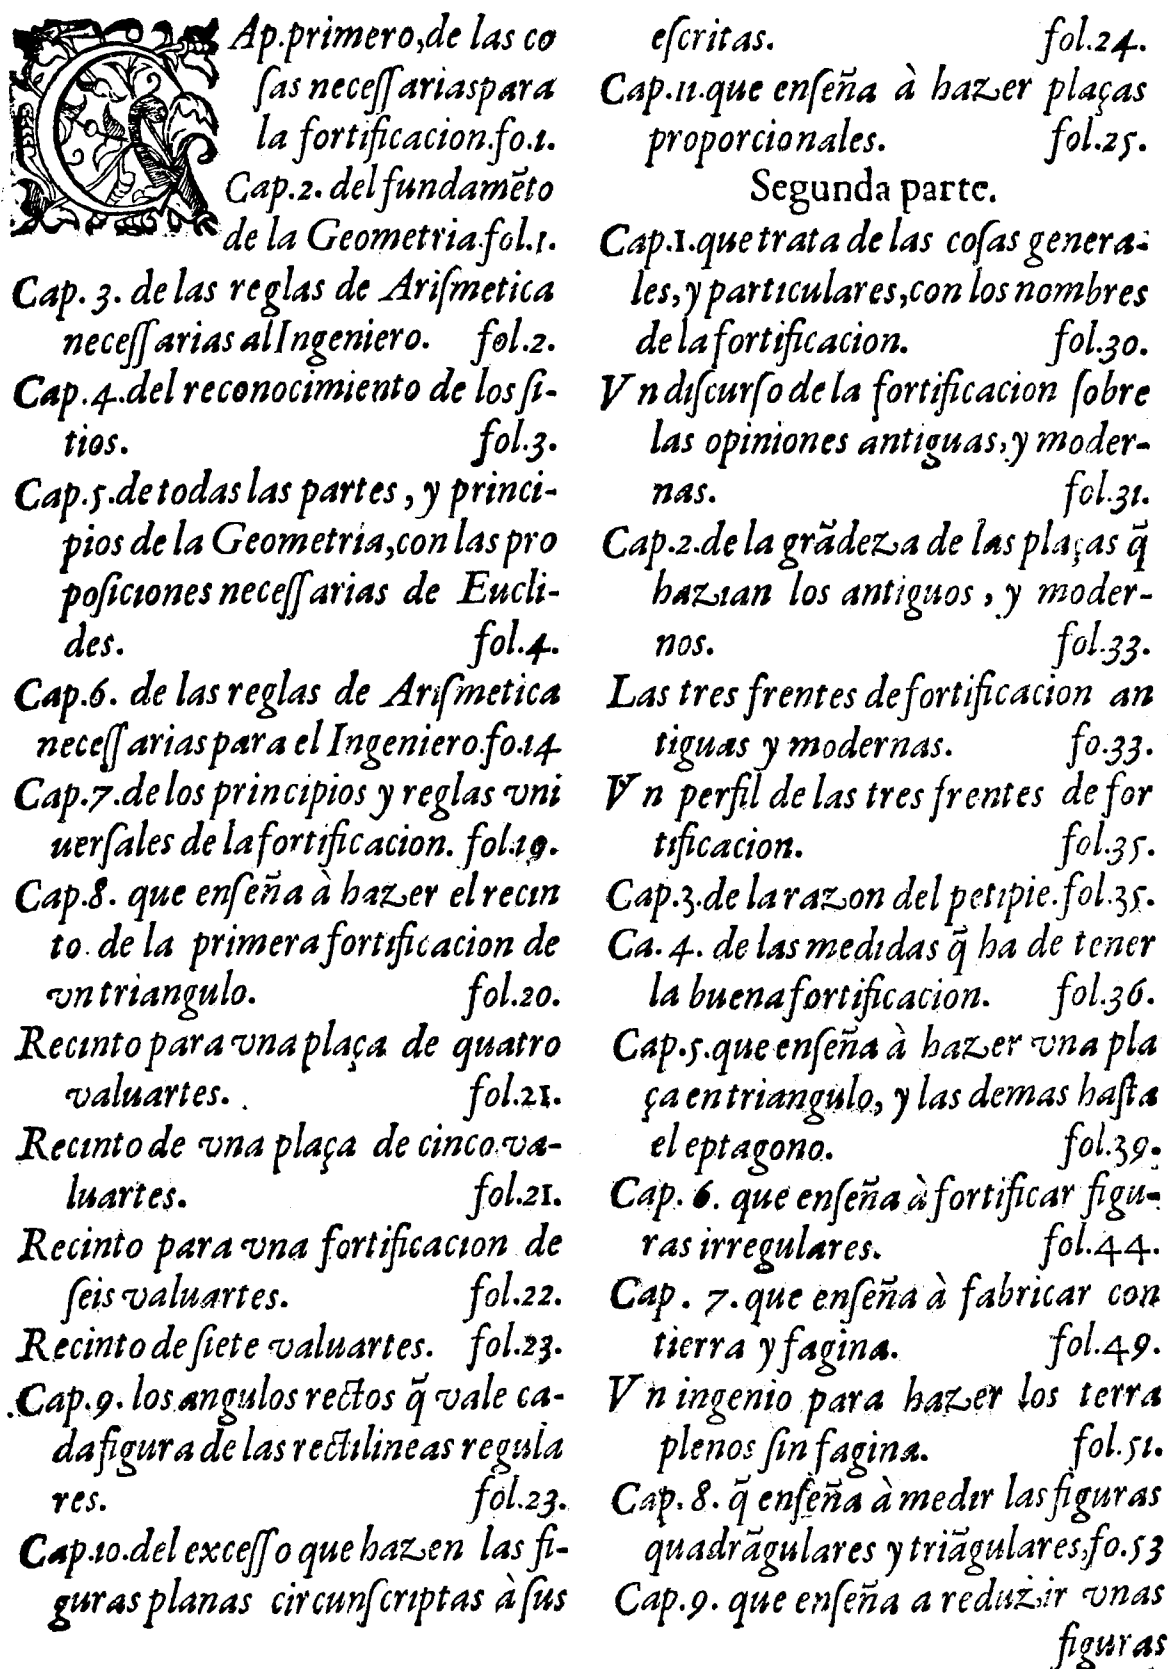 CAp.primero,de las co
ſas neceſſariaspara
la fortificacion.fo.1.
Cap.2. del fundamẽto
de la Geometria.fol.1.
Cap. 3. de las reglas de Ariſmetica
neceſſarias al Ingeniero. fol.2.
Cap.4.del reconocimiento de los ſi-
tios. fol.3.
Cap.5.de todas las partes , y princi-
pios de la Geometria,con las pro
poſiciones neceſſarias de Eucli-
des. fol.4.
Cap.6. de las reglas de Ariſmetica
neceſſarias para el Ingeniero.fo.14
Cap.7.de los principios y reglas vni
uerſales de la fortificacion. fol.19.
Cap.8. que enſeña à hazer el recin
to de la primera fortificacion de
vn triangulo. fol.20.
Recinto para vna plaça de quatro
valuartes. fol.21.
Recinto de vna plaça de cinco va-
luartes. fol.21.
Recinto para vna fortificacion de
ſeis valuartes. fol.22.
Recinto de ſiete valuartes. fol.23.
Cap.9. los angulos rectos q̃ vale ca-
da figura de las rectilineas regula
res. fol.23.
Cap.10.del exceſſo que hazen las fi-
guras planas circunſcriptas à ſus
eſcritas. fol.24.
Cap.11.que enſeña à hazer plaças
proporcionales. fol.25.
Segunda parte.
Cap.1.que trata de las coſas genera-
les,y particulares,con los nombres
de la fortificacion. fol.30.
Vn diſcurſo de la fortificacion ſobre
las opiniones antiguas,y moder-
nas. fol.31.
Cap.2.de la grãdeza de las plaças q̃
hazian los antiguos , y moder-
nos. fol.33.
Las tres frentes de fortificacion an
tiguas y modernas. fo.33.
Vn perfil de las tres frentes de for
tificacion. fol.35.
Cap.3.de la razon del petipie.fol.35.
Ca. 4. de las medidas q̃ ha de tener
la buena fortificacion. fol.36.
Cap.5.que enſeña à hazer vna pla
ça en triangulo, y las demas haſta
el eptagono. fol.39.
Cap. 6. que enſeña à fortificar figu-
ras irregulares. fol.44.
Cap. 7.que enſeña à fabricar con
tierra y fagina. fol.49.
Vn ingenio para hazer los terra
plenos ſin fagina. fol.51.
Cap. 8. q̃ enſeña à medir las figuras
quadrãgulares y triãgulares,fo.53
Cap.9. que enſeña a reduzir vnas
figuras